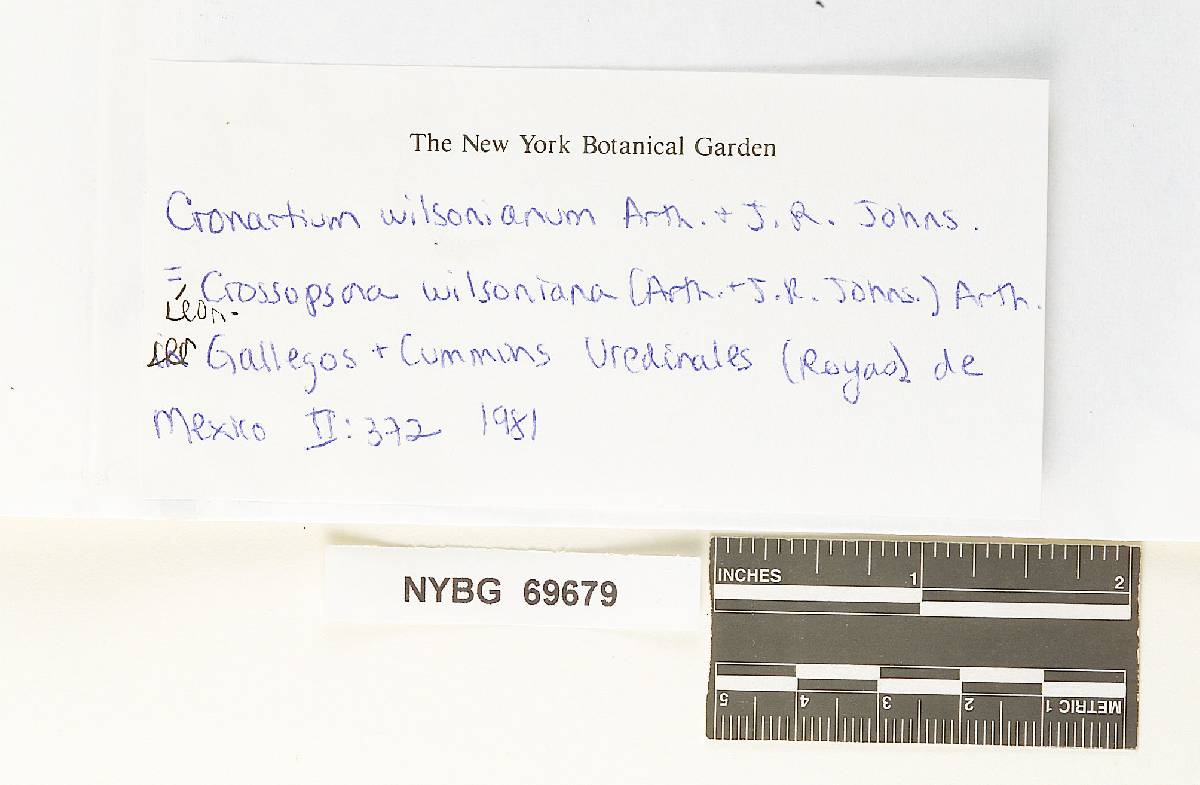 The New York Botanical Garden
Cronartium wilsonianum Arth. + J.R. Johns.
= Crossopsora wilsoniana (Arth. + J.R. Johns.) Arth.
León-
Gallegos + Cummins Uredinales (Royas) de
Mexico II: 372 1981
NYBG 69679
INCHES 1 2
5 4 3 2 METRIC 1